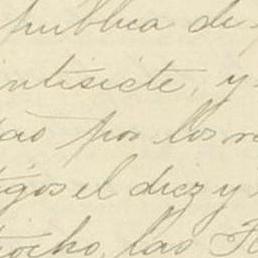 publica de
intisiete, y
tao por los
tigos el diez y
iocho, las